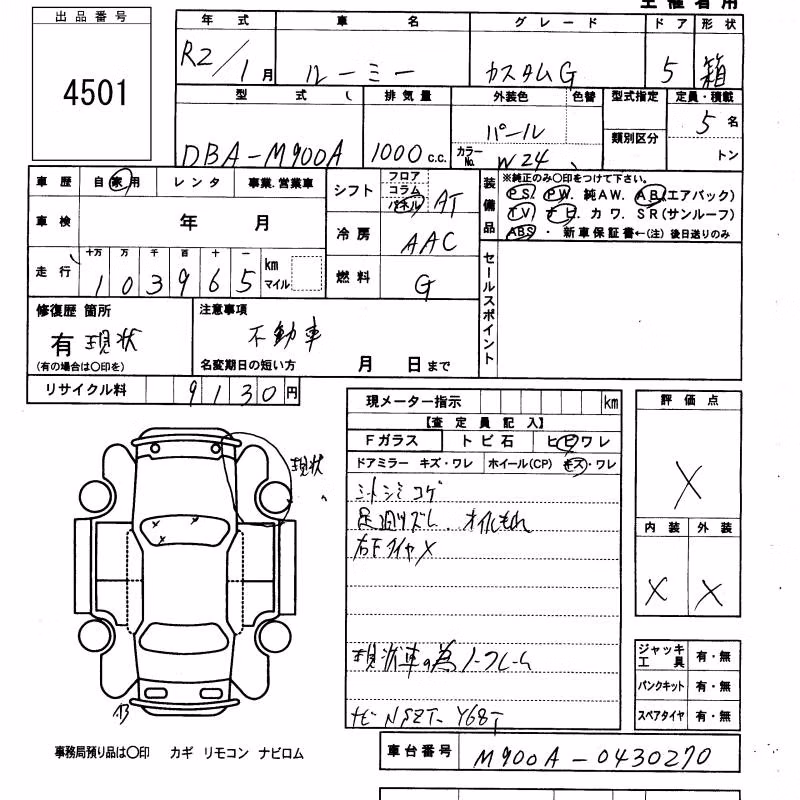 主催者用
出品番号
4501
年式 車名 グレード ドア 形状
R2/1月 ルーミー カスタムG 5 箱
型式 排気量 外装色 色替 型式指定 定員・積載
DBA-M900A 1000c.c. パール 類別区分 5名
カラーNo. W24 トン
車歴 自家用 レンタ 事業.営業車
シフト フロア コラム パネル AT
装備品 ※純正のみ〇印をつけて下さい。
PS. PW. 純AW. AB(エアバック)
TV ナビ. カワ. SR(サンルーフ)
ABS ・ 新車保証書←(注) 後日送りのみ
車検 年 月
冷房 AAC
走行 十万 万 千 百 十 一
103965 km マイル
燃料 G
セールスポイント
修復歴 箇所
有 現状
(有の場合は〇印を)
注意事項
不動車
名変期日の短い方 月 日まで
リサイクル料 9130円
現メーター指示 km
【査定員記入】
Fガラス トビ石 ヒビワレ
ドアミラー キズ・ワレ ホイール(CP) キズ・ワレ
シートシミコゲ
足廻りズレ. オイルもれ
右Fタイヤ×
現状車の為ノークレーム
ナビ NSZT-Y68T
現状
評価点
×
内装 外装
× ×
ジャッキ工具 有・無
パンクキット 有・無
スペアタイヤ 有・無
事務局預り品は〇印 カギ リモコン ナビロム
車台番号 M900A-0430270